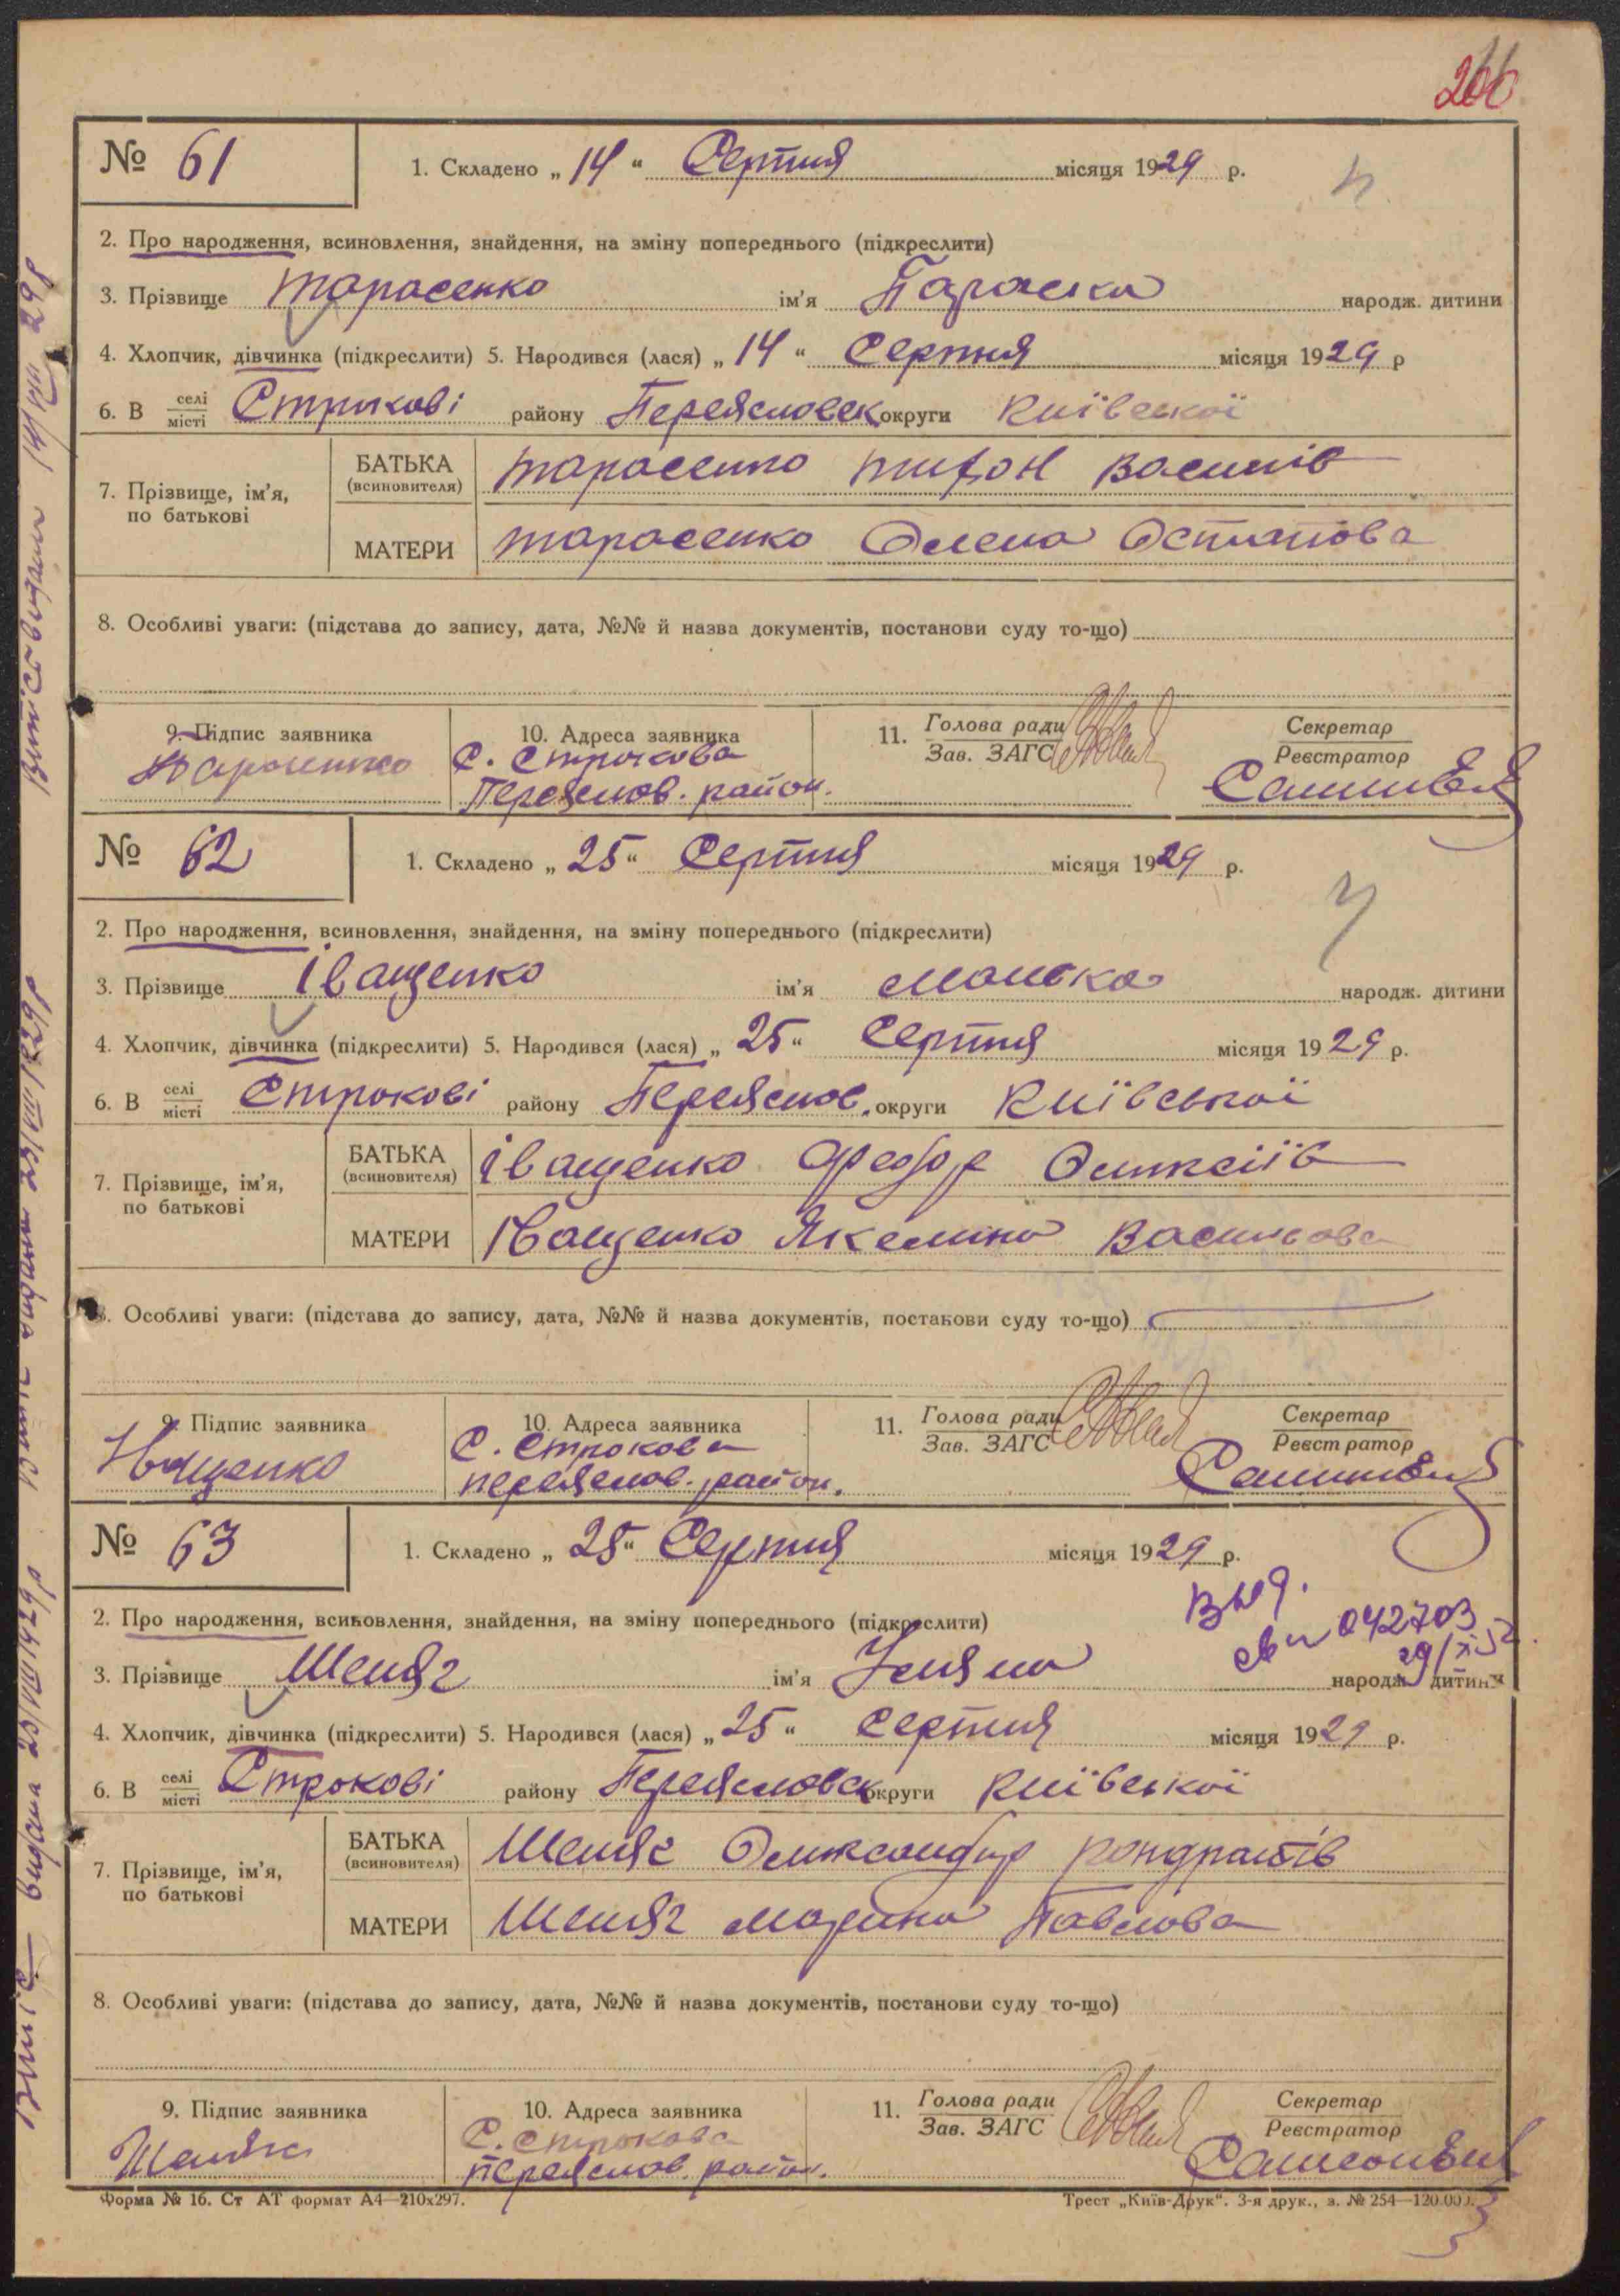 № 61
1. Складено „ 14 “ Серпня місяця 1929 р.
2. Про народження, всиновлення, знайдення, на зміну попереднього (підкреслити)
3. Прізвище Тарасенко ім'я Параска народж. дитини
4. Хлопчик, дівчинка (підкреслити) 5. Народився (лася) „ 14 “ Серпня місяця 1929 р
6. В селі місті Строкові району Переяславск округи Київської
7. Прізвище, ім'я, по батькові
БАТЬКА (всиновителя) Тарасенко Тихон Василів
МАТЕРИ Тарасенко Олена Остапова
8. Особливі уваги: (підстава до запису, дата, №№ й назва документів, постанови суду то-що)
9. Підпис заявника Тарасенко
10. Адреса заявника С. Строкова Переяслов. район.
11. Голова ради Зав. ЗАГС
Секретар Реєстратор
№ 62
1. Складено „ 25 “ Серпня місяця 1929 р.
2. Про народження, всиновлення, знайдення, на зміну попереднього (підкреслити)
3. Прізвище Іващенко ім'я народж. дитини
4. Хлопчик, дівчинка (підкреслити) 5. Народився (лася) „ 25 “ Серпня місяця 1929 р.
6. В селі місті Строкові району Переяслов. округи Київської
7. Прізвище, ім'я, по батькові
БАТЬКА (всиновителя) Іващенко Федор Олексіїв
МАТЕРИ Іващенко Якелина Васильова
8. Особливі уваги: (підстава до запису, дата, №№ й назва документів, постакови суду то-що)
9. Підпис заявника Іващенко
10. Адреса заявника С. Строкова Переяслов. район.
11. Голова ради Зав. ЗАГС
Секретар Реєстратор
№ 63
1. Складено „ 25 “ Серпня місяця 1929 р.
Выд.
св 042703
2. Про народження, всиновлення, знайдення, на зміну попереднього (підкреслити)
3. Прізвище Шеляг ім'я Уляна народж. дитини
4. Хлопчик, дівчинка (підкреслити) 5. Народився (лася) „ 25 “ Серпня місяця 1929 р.
6. В селі місті Строкові району Переяславск округи Київської
7. Прізвище, ім'я, по батькові
БАТЬКА (всиновителя) Шеляг Олександир Кондратів
МАТЕРИ Шеляг Марина Павлова
8. Особливі уваги: (підстава до запису, дата, №№ й назва документів, постанови суду то-що)
9. Підпис заявника
10. Адреса заявника С. Строкова Переяслов. район.
11. Голова ради Зав. ЗАГС
Секретар Реєстратор
Форма № 16. Ст АТ формат А4—210х297.
Трест „Київ-Друк“. 3-я друк., з. № 254—120.000.
Витісь видана 14/VIII 29р
Витіс видана 25/VIII 1929р
Витіс видана 25/VIII 1929р